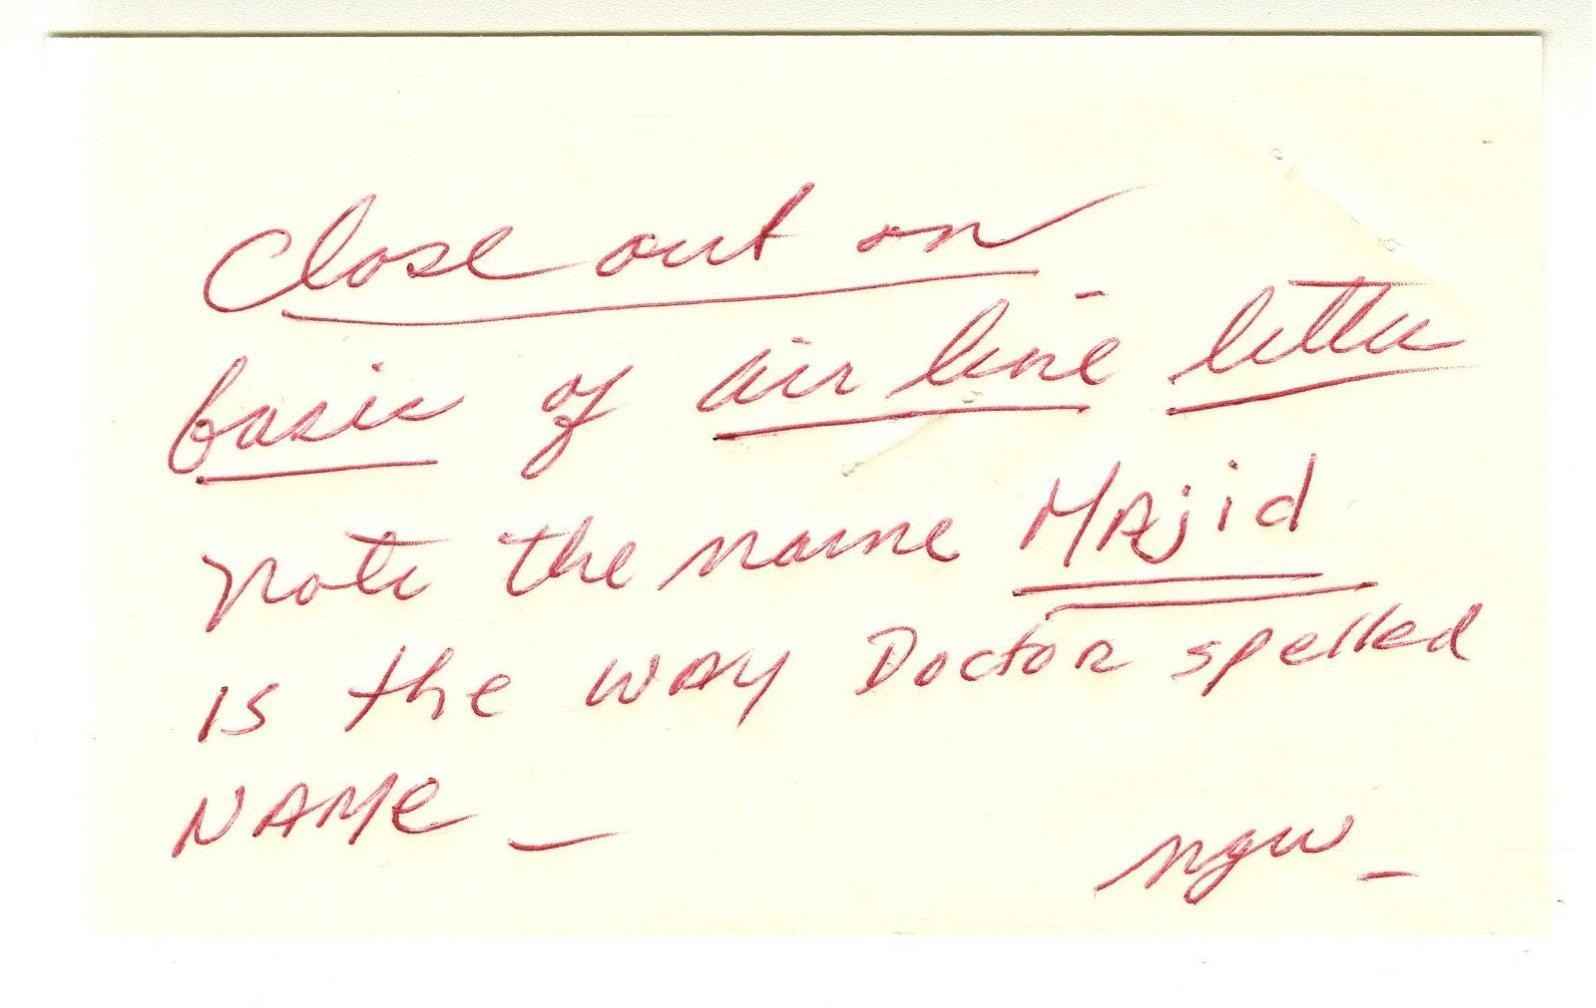 Close out on
basic of air line letter
note the name MAjid
is the WAY Doctor spelled
NAMe —
ngw —